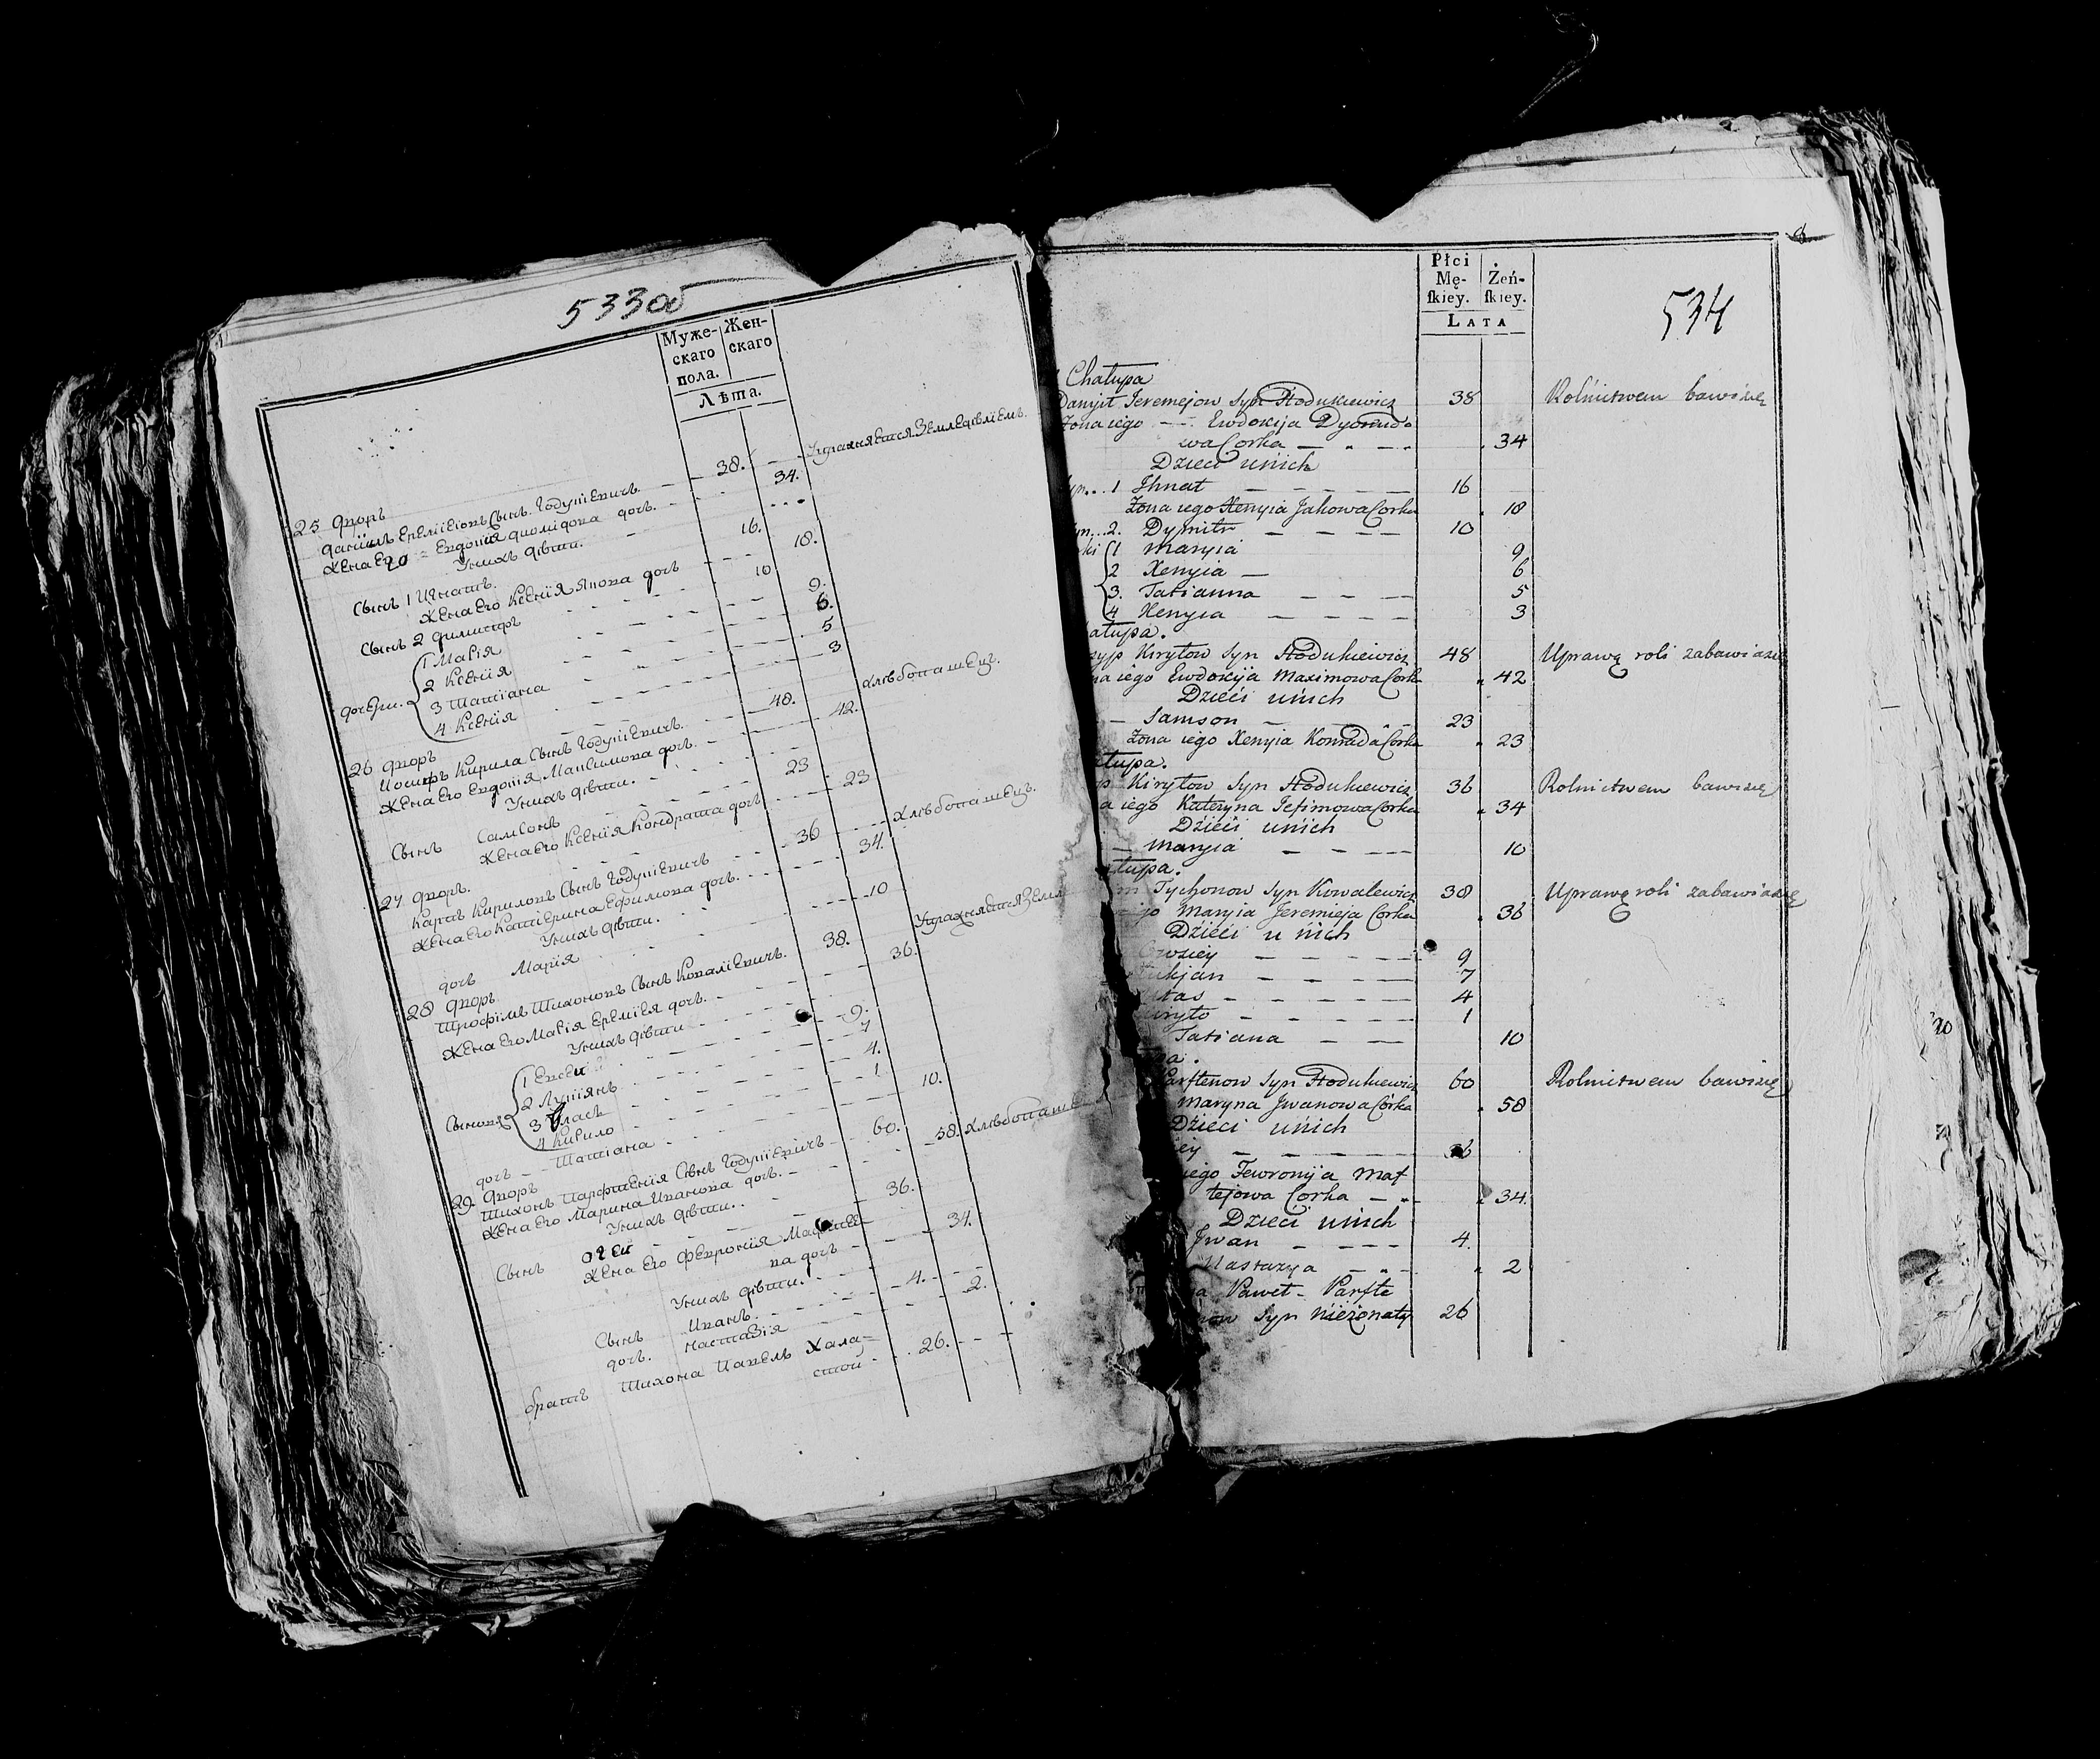 533об
Муже-
скаго
пола.
Жен-
скаго
Лѣта.
25 дворъ
Данiилъ Еремiевъ Сынъ Годунiевичъ 38. Упражняется Земледѣлiемъ.
Жена Его Евдокiя Дiомидова дочь. 34.
У нихъ дѣти.
Сынъ 1 Игнатъ. 16.
Жена Его Ксенiя Якова дочь 18.
Сынъ 2 Димитръ 10
дочери. 1 Марiя 9.
2 Ксенiя 6.
3 Татiана 5
4 Ксенiя 3
26 дворъ
Iосифъ Кирила Сынъ Годунiевичъ. 48. хлѣбопашецъ.
Жена Его Евдокiя Максимова дочь. 42.
У нихъ дѣти.
Сынъ Самсонъ 23
Жена Его Ксенiя Кондрата дочь 23
27 дворъ.
Карпъ Кириловъ Сынъ Годунiевичъ 36 хлѣбопашецъ.
Жена Его Катерина Ефимова дочь. 34.
У нихъ дѣти.
дочь Марiя 10
28 дворъ
Трофимъ Тихоновъ Сынъ Ковалiевичъ. 38. Упражняется Земле
Жена Его Марiя Еремiея дочь. 36.
У нихъ дѣти
Сыновья 1 Евсей 9.
2 Лукiянъ 7
3 Власъ 4.
4 Кирило 1.
дочь Татiана 10.
29. дворъ
Тихонъ Парфенiя Сынъ Годунiевичъ 60. хлѣбопаше
Жена Его Марина Иванова дочь. 58.
У нихъ дѣти.
Сынъ 36.
Жена Его Февронiя Матfее-
ва дочь 34.
У нихъ дѣти.
Сынъ Иванъ. 4.
дочь. Настазiя 2.
братъ Тихона Павелъ Хола-
стой 26.
Płci
Mę-
ſkiey.
Żeń-
ſkiey.
LATA
534
Chałupa
Danyił Jeremejow Syn Hodukiewicz 38 Rolnictwem bawi się
Żona iego Ewdokija Dyomido
wa Corka 34
Dzieci u nich
1 Ihnat 16
Żona iego Xenyia Jakowa Corka 18
2. Dymitr 10
1 Maryia 9
2 Xenyia 6
3. Tatianna 5
4 Xenyia 3
ałupa.
Kiryłow Syn Hodukiewicz 48 Uprawą roli zabawia się
iego Ewdokija Maximowa Corka 42
Dzieci u nich
Samson 23
Żona iego Xenyia Konrada Corka 23
ałupa.
Kiryłow Syn Hodukiewicz 36 Rolnictwem bawi się
iego Kateryna Jefimowa Corka 34
Dzieci u nich
Maryia 10
ałupa.
Tychonow Syn Kowalewicz 38 Uprawą roli zabawia się
Maryia Jeremieja Corka 36
Dzieci u nich
Owziey 9
ukjan 7
łas 4
iryło 1
Tatiana 10
pa.
Parftenow Syn Hodukiewicz 60 Rolnictwem bawi się
Maryna Jwanowa Córka 58
Dzieci u nich
iey 36
iego Fewronija Mat
tejowa Corka 34.
Dzieci u nich
Jwan 4.
Nastazya 2
Paweł Parfte
now Syn nieżonaty 26